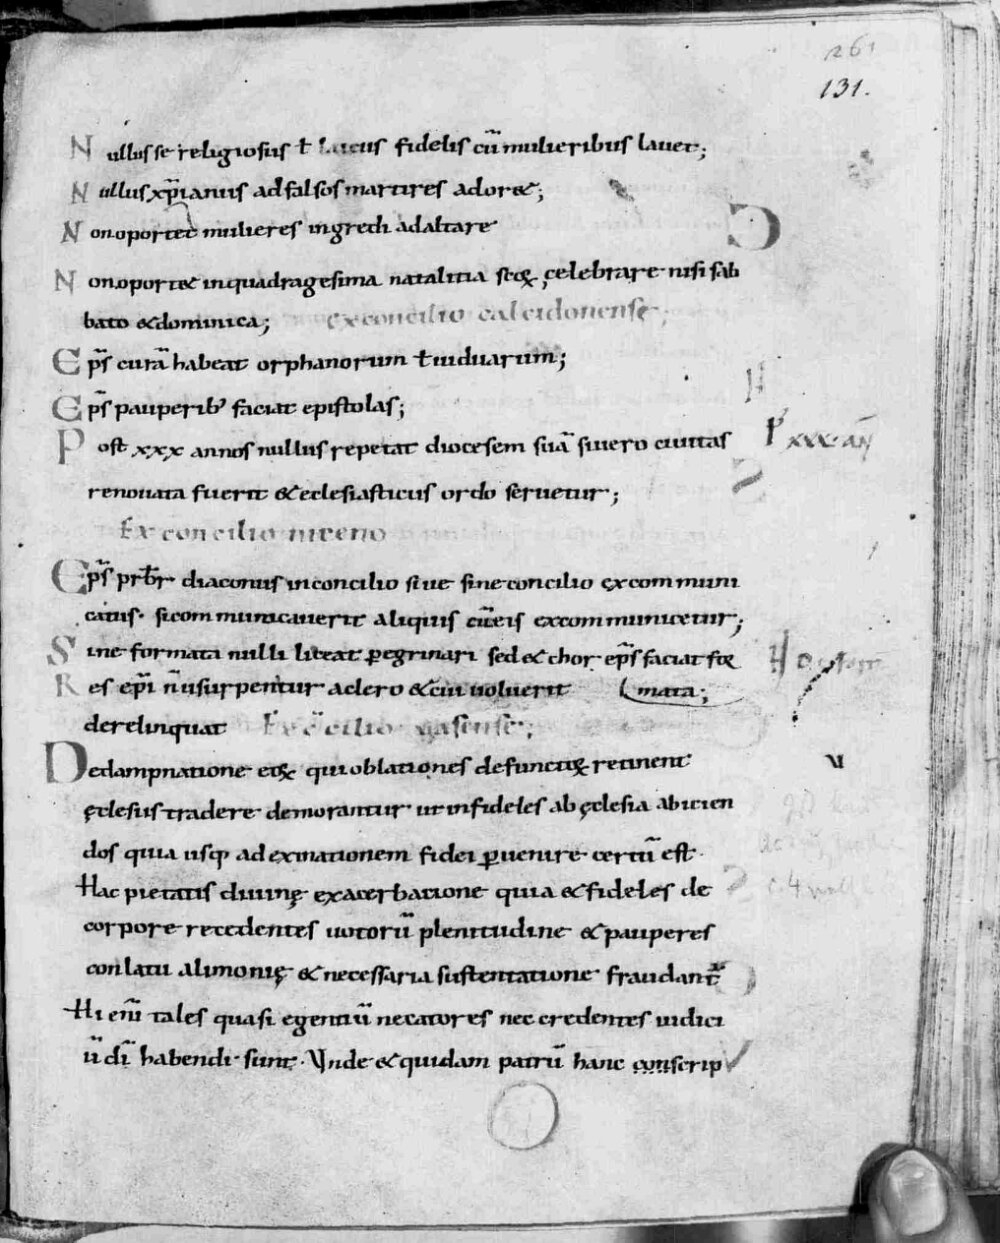 261
131.
Nullus se religiosus ł laicus fidelis cū mulieribus lauet;
Nullus xp̄ianus ad falsos martires ador&;
Non oportet mulieres ingredi ad altare
Non oport& in quadragesima natalitia scōꝝ celebrare nisi sab
bato & dominica; ex concilio calcidonense;
Ep̄s curā habeat orphanorum ł uiduarum;
Ep̄s pauperib' faciat epistolas;
Post xxx annos nullus repetat diocesem suā si uero ciuitas
P' xxx. añ
renouata fuerit & eclesiasticus ordo seruetur;
Ex concilio niceno
Ep̄s prb̄r diaconus in concilio siue sine concilio excommuni
catus. si communicauerit aliquis cū eis excommunicetur;
Sine formata nulli liceat ꝑegrinari sed & chor ep̄s faciat foꝝ
mata;
Res ep̄i n̄ usurpentur a clero & cui uoluerit
derelinquat Ex c̄cilio uasense;
De dampnatione eoꝝ qui oblationes defunctoꝝ retinent
ęclesiis tradere demorantur ut infideles ab ęclesia abicien
VI
dos quia usq; ad exinanitionem fidei ꝑuenire certū est.
Hac pietatis diuinę exacerbatione quia & fideles de
corpore recedentes uotorū plenitudine & pauperes
conlatu alimonię & necessaria sustentatione fraudant̄
Hi enī tales quasi egentiū necatores nec credentes iudici
ū dī habendi sunt. Unde & quidam patrū hanc conscrip